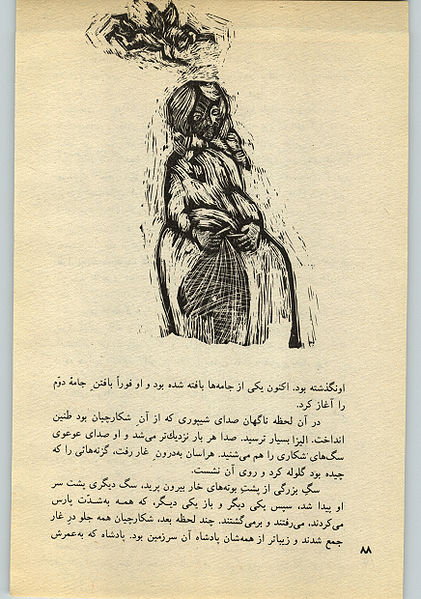 اونگذشته بود. اکنون یکی از جامه‌ها بافته شده بود و او فوراً بافتنِ جامهٔ دوّم
را آغاز کرد.
در آن لحظه ناگهان صدای شیپوری که از آنِ شکارچیان بود طنین
انداخت. الیزا بسیار ترسید. صدا هر بار نزدیك‌تر می‌شد و او صدای عوعوی
سگ‌های شکاری را هم می‌شنید. هراسان به‌درونِ غار رفت، گزنه‌هائی را که
چیده بود گلوله کرد و روی آن نشست.
سگِ بزرگی از پشتِ بوته‌های خار بیرون پرید، سگ دیگری پشت سر
او پیدا شد، سپس یکی دیگر و باز یکی دیگر، که همه به‌شدّت پارس
می‌کردند، می‌رفتند و برمی‌گشتند. چند لحظه بعد، شکارچیان همه جلو درِ غار
جمع شدند و زیباتر از همه‌شان پادشاه آن سرزمین بود. پادشاه که به‌عمرش
۸۸